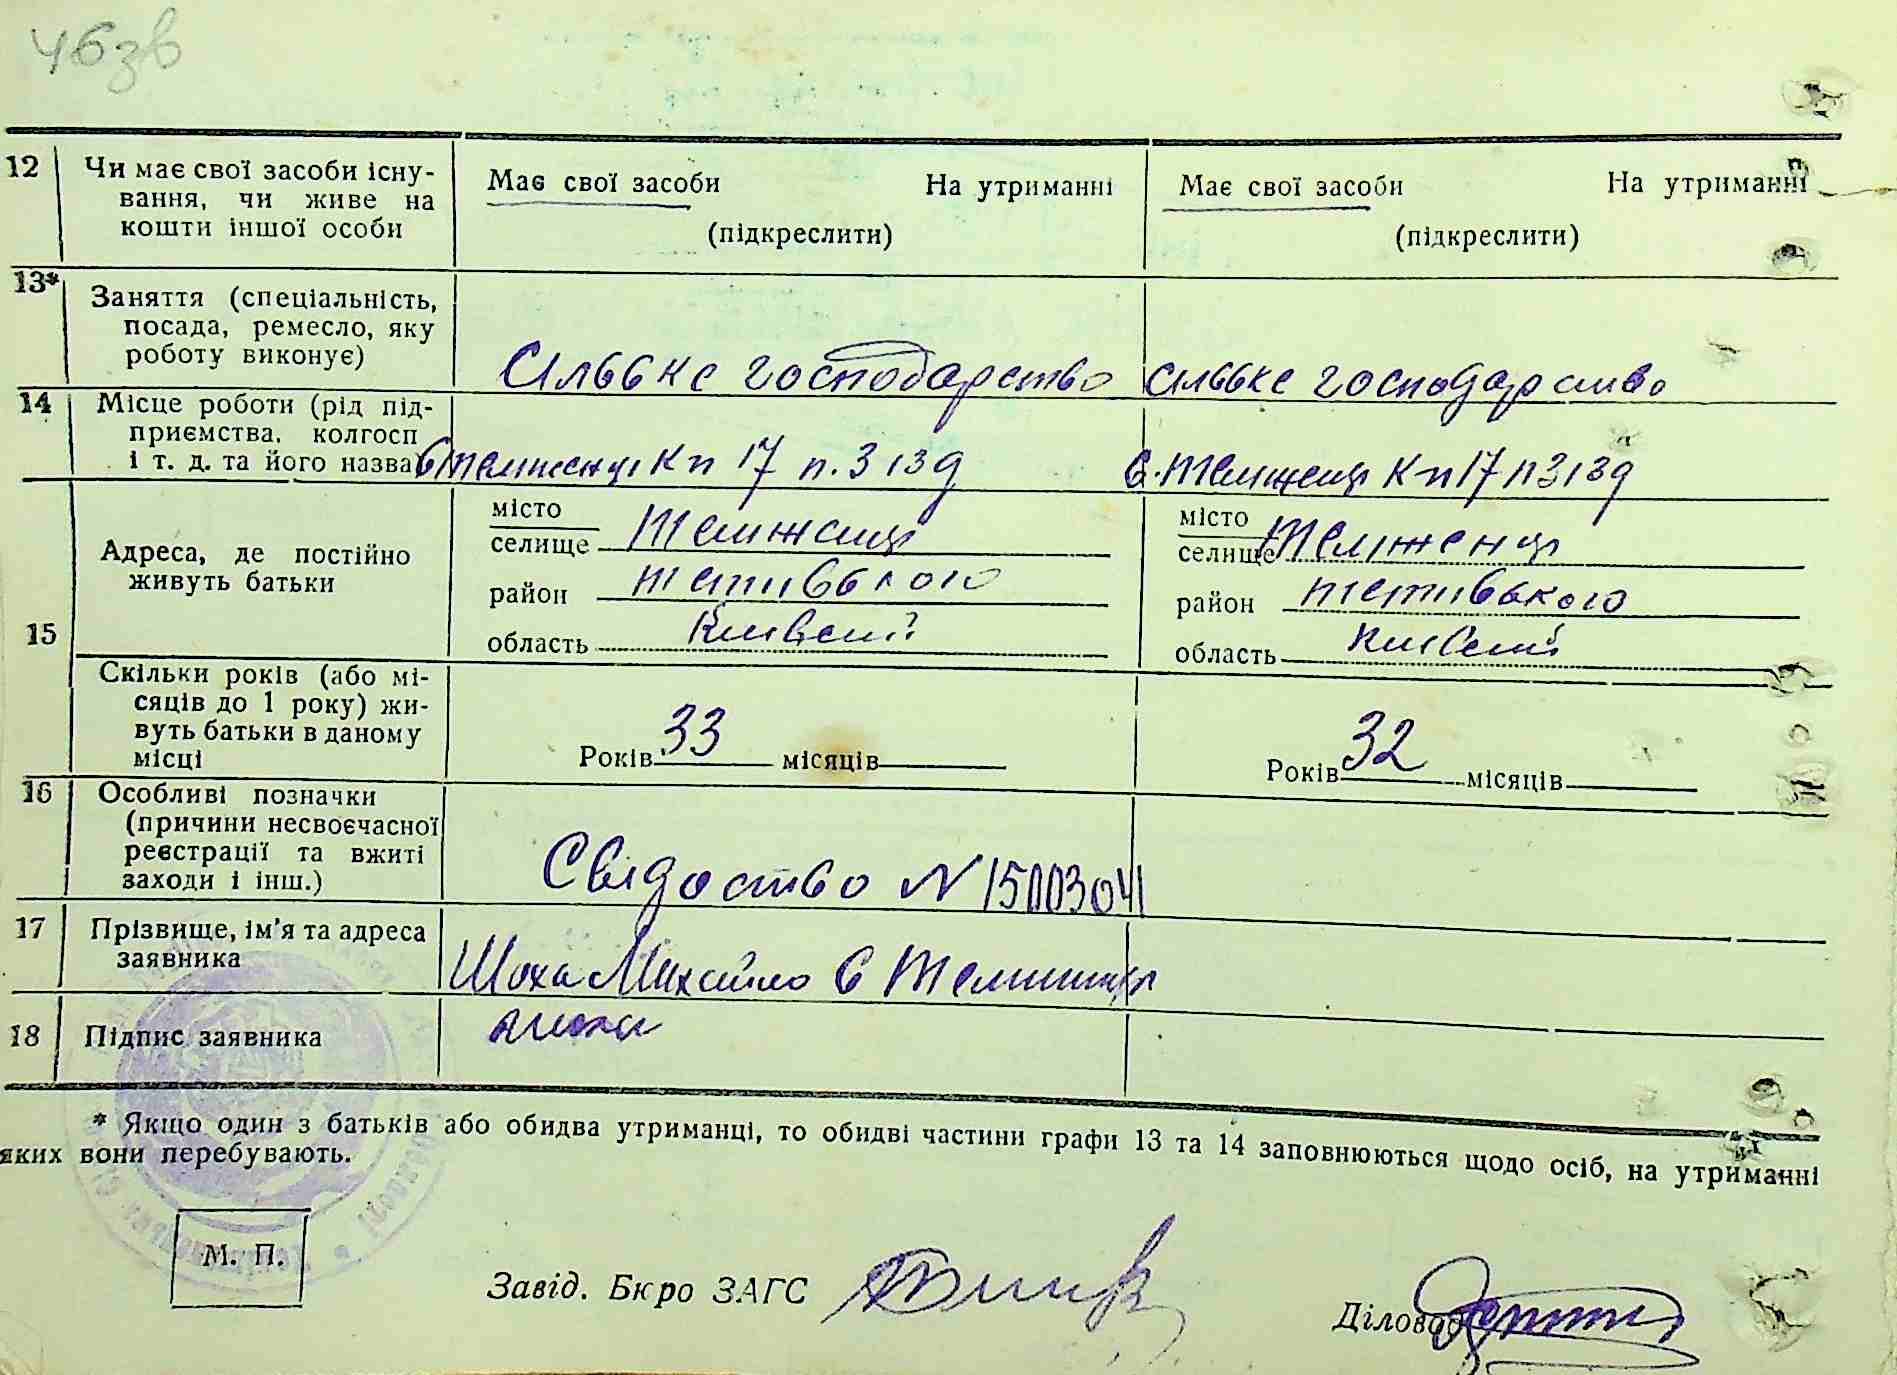 46зв
12 Чи має свої засоби існу- Має свої засоби На утриманні Має свої засоби На утриманні
вання, чи живе на
кошти іншої особи (підкреслити) (підкреслити)
13* Заняття (спеціальність,
посада, ремесло, яку
роботу виконує) Сільське господарство сільське господарство
14 Місце роботи (рід під-
приємства, колгосп
і т. д. та його назва) Кп 17 п. 3 ізд Кп 17 п 3 ізд
місто місто
селище селище
15 Адреса, де постійно
живуть батьки
район тетивського район тетивського
область Київській область Київській
Скільки років (або мі-
сяців до 1 року) жи-
вуть батьки в даному
місці Років 33 місяців Років 32 місяців
16 Особливі позначки
(причини несвоєчасної
реєстрації та вжиті
заходи і інш.) Свідоство N 1500304
17 Прізвище, ім'я та адреса
заявника Шоха Михайло с
18 Підпис заявника
* Якщо один з батьків або обидва утриманці, то обидві частини графи 13 та 14 заповнюються щодо осіб, на утриманні
яких вони перебувають.
М. П.
Завід. Бюро ЗАГС
Діловод